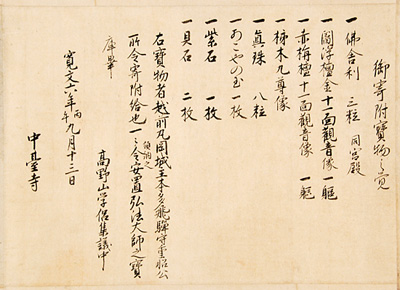 御寄附寳物之覚
一佛舎利 三粒 同宮殿
一閻浮檀金十一面観音像 一軀
一赤栴檀十一面観音像 一軀
一柿木九尊像
一真珠 八粒
一あこやの玉 一枚
一紫石 一枚
一貝石 二枚
右寳物者越前丸岡城主本多飛騨守重昭公
所令寄附給也一々令安置弘法大師之寳
領納之
庫畢
高野山学侶集議中
寛文六年丙午九月十三日
中臺寺